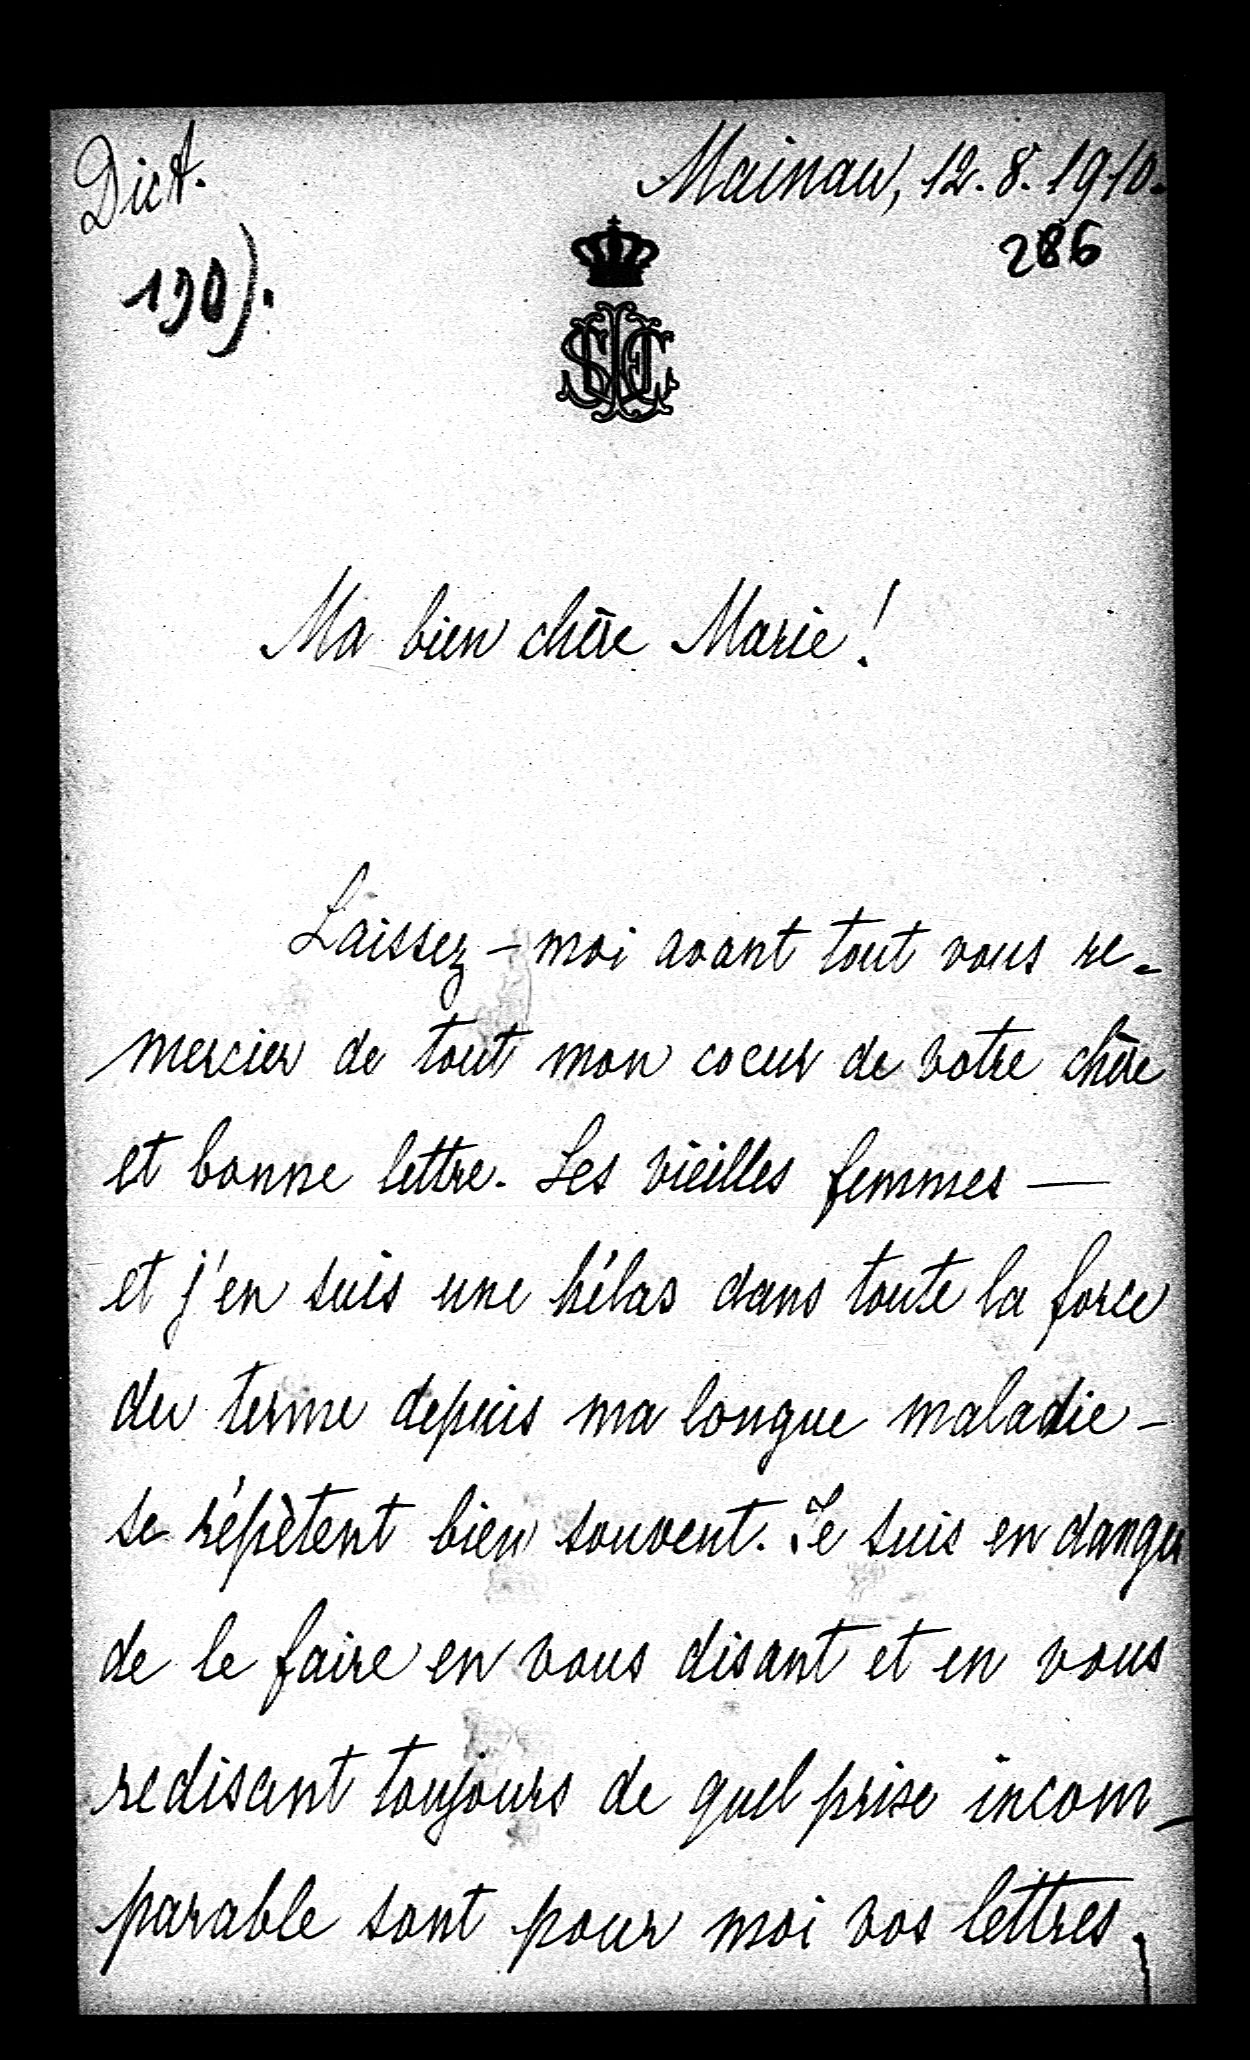 Dict.
Mainau, 12. 8. 1910.
286
190).
Ma bien chère Marie!
Laissez-moi avant tout vous re-
mercier de tout mon coeur de votre chère
et bonne lettre. Les vieilles femmes —
et j'en suis une hélas dans toute la force
du terme depuis ma longue maladie -
se répètent bien souvent. Je suis en danger
de le faire en vous disant et en vous
redisant toujours de quel prise incom-
parable sont pour moi vos lettres.